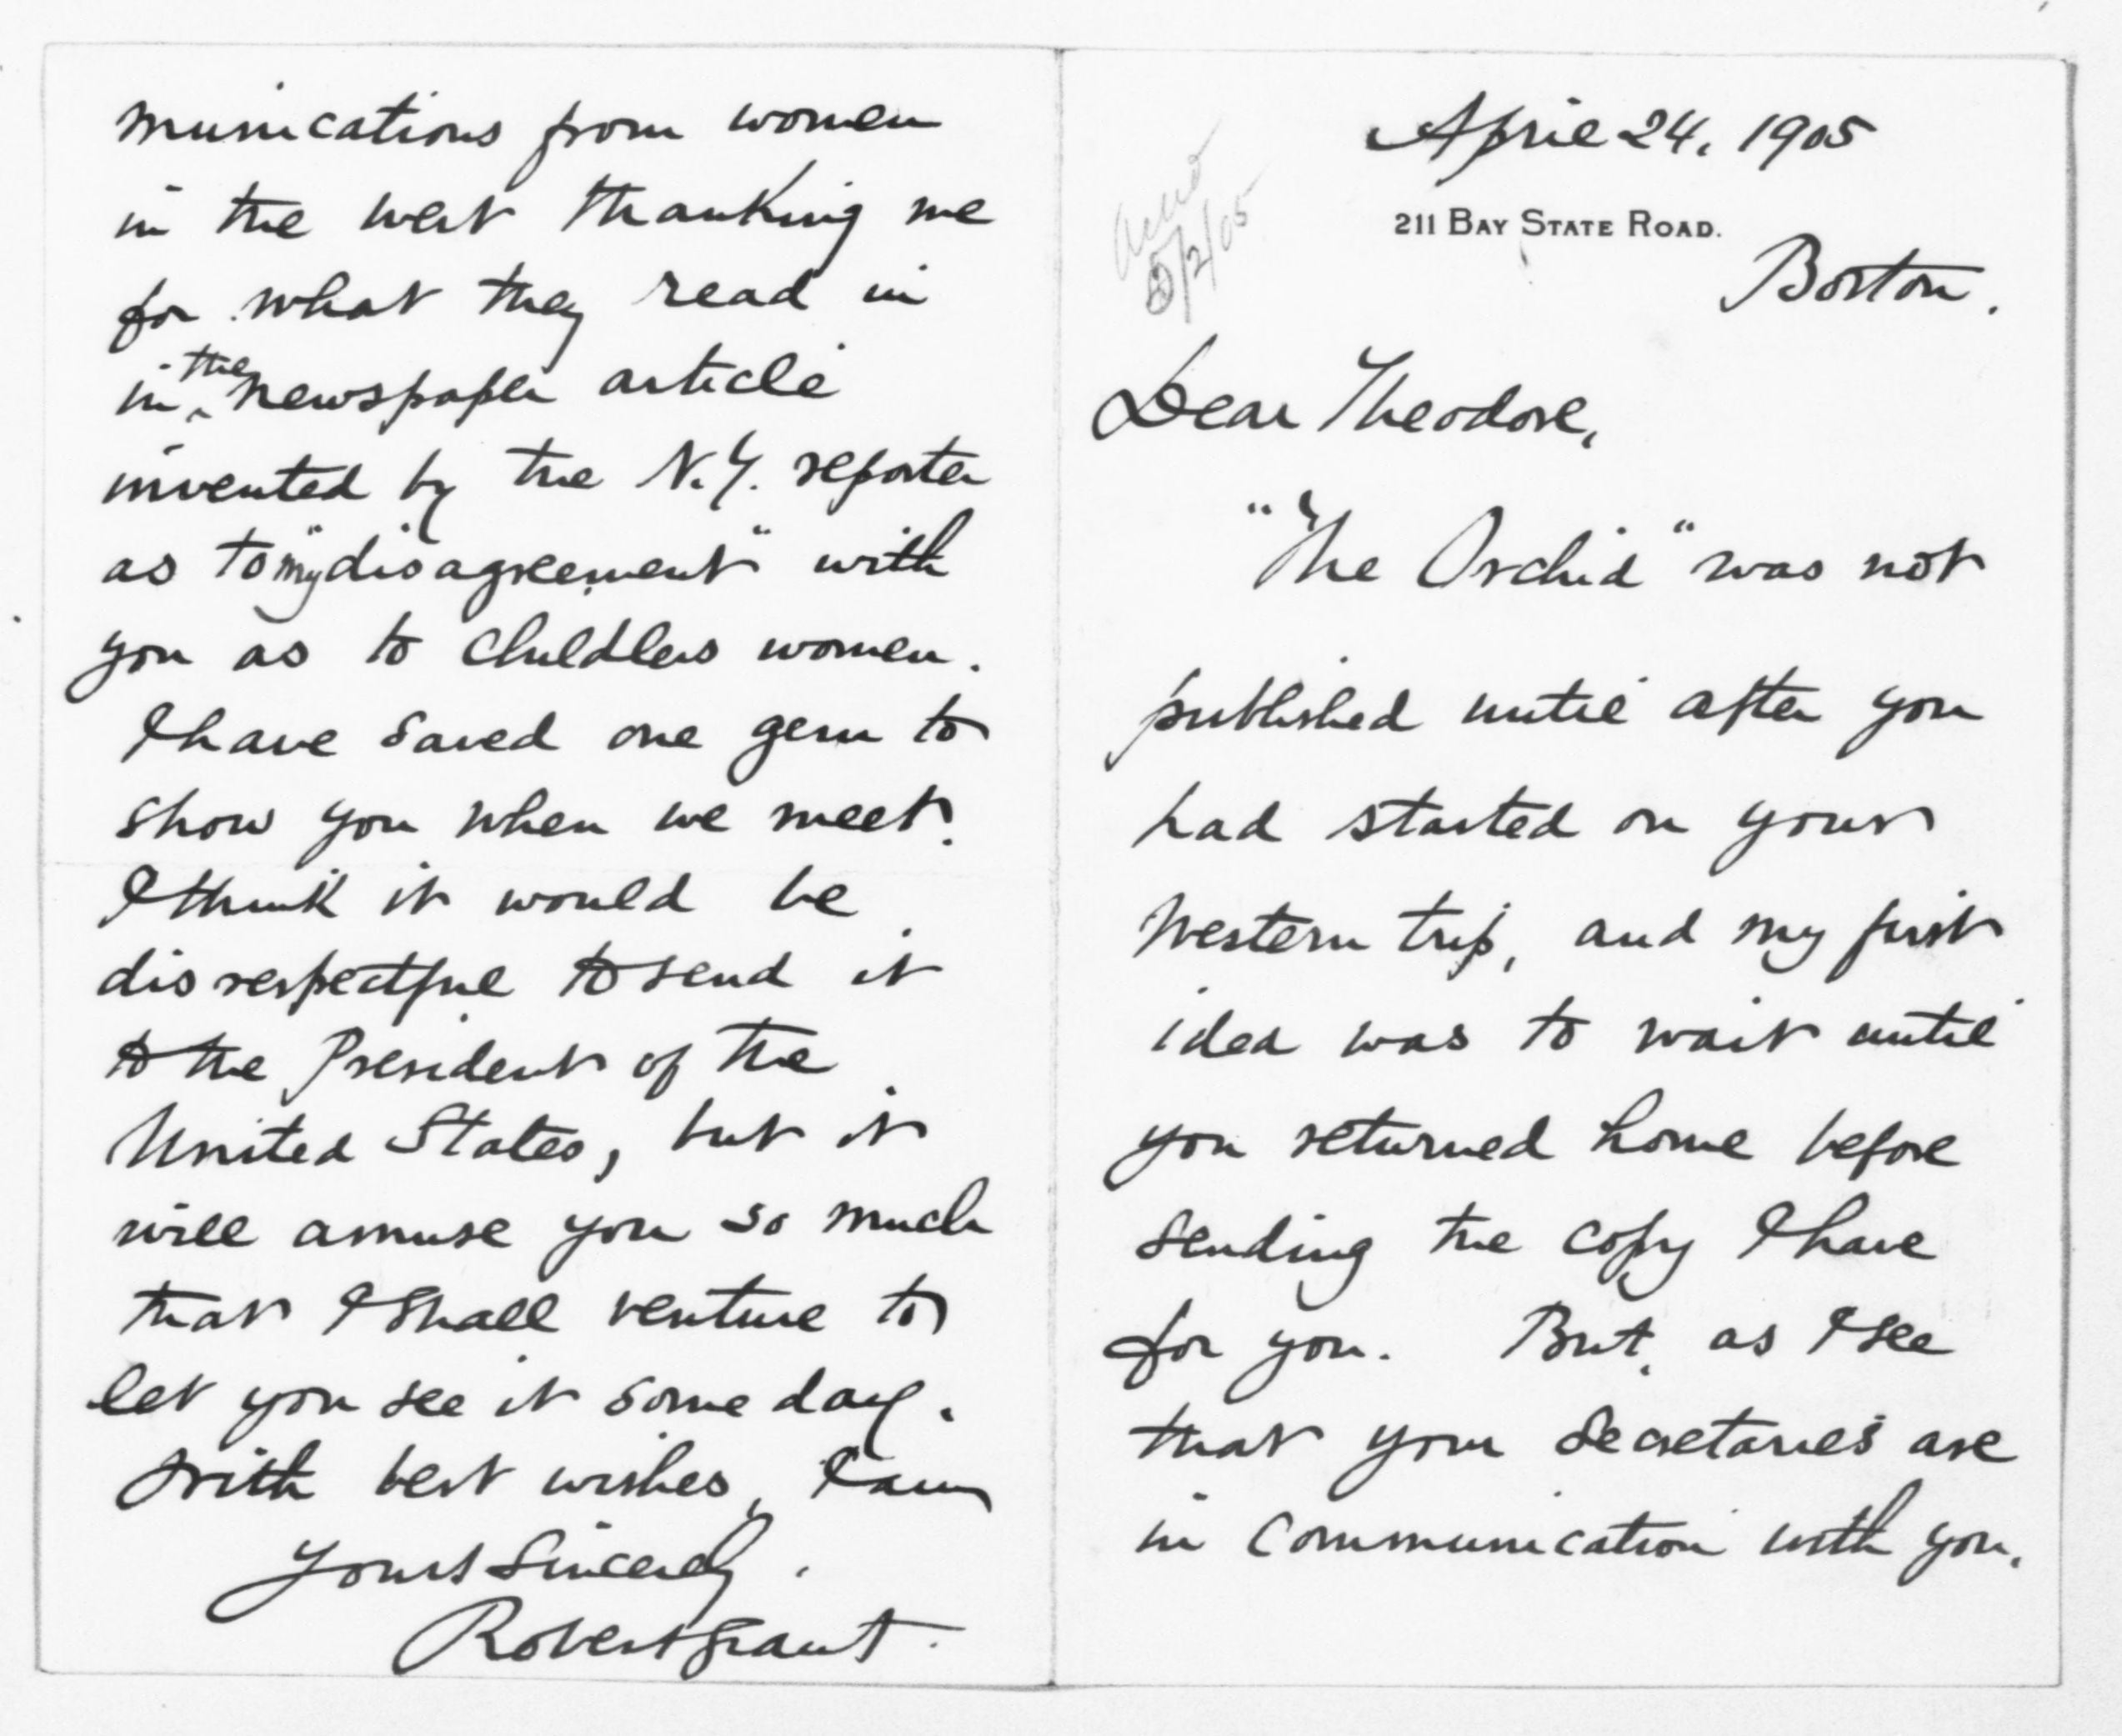 April 24, 1905
211 BAY STATE ROAD.
Boston.
5/2/05
Dear Theodore,
"The Orchid" was not
published until after you
had started on your
Western trip, and my first
idea was to wait until
you returned home before
sending the copy I have
for you. But, as I see
that your secretaries are
in communication with you,
munications from women
in the west thanking me
for what they read in
in the newspaper article
invented by the N.Y. reporter
as to my "disagreement" with
you as to childless women.
I have saved one gem to
show you when we meet.
I think it would be
disrespectful to send it
to the President of the
United States, but it
will amuse you so much
that I shall venture to
let you see it some day.
With best wishes, I am
Yours sincerely,
Robert Grant.